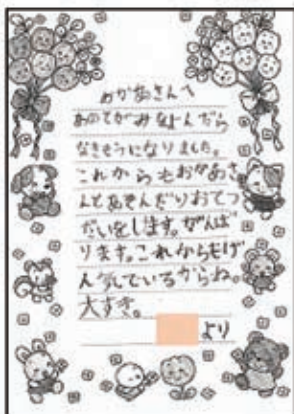 おかあさんへ
あのてがみをよんだら
なきそうになりました。
これからもおかあさ
んとあそんだりおてつ
だいをします。がんば
ります。これからもげ
ん気でいるからね。
大すき。
より